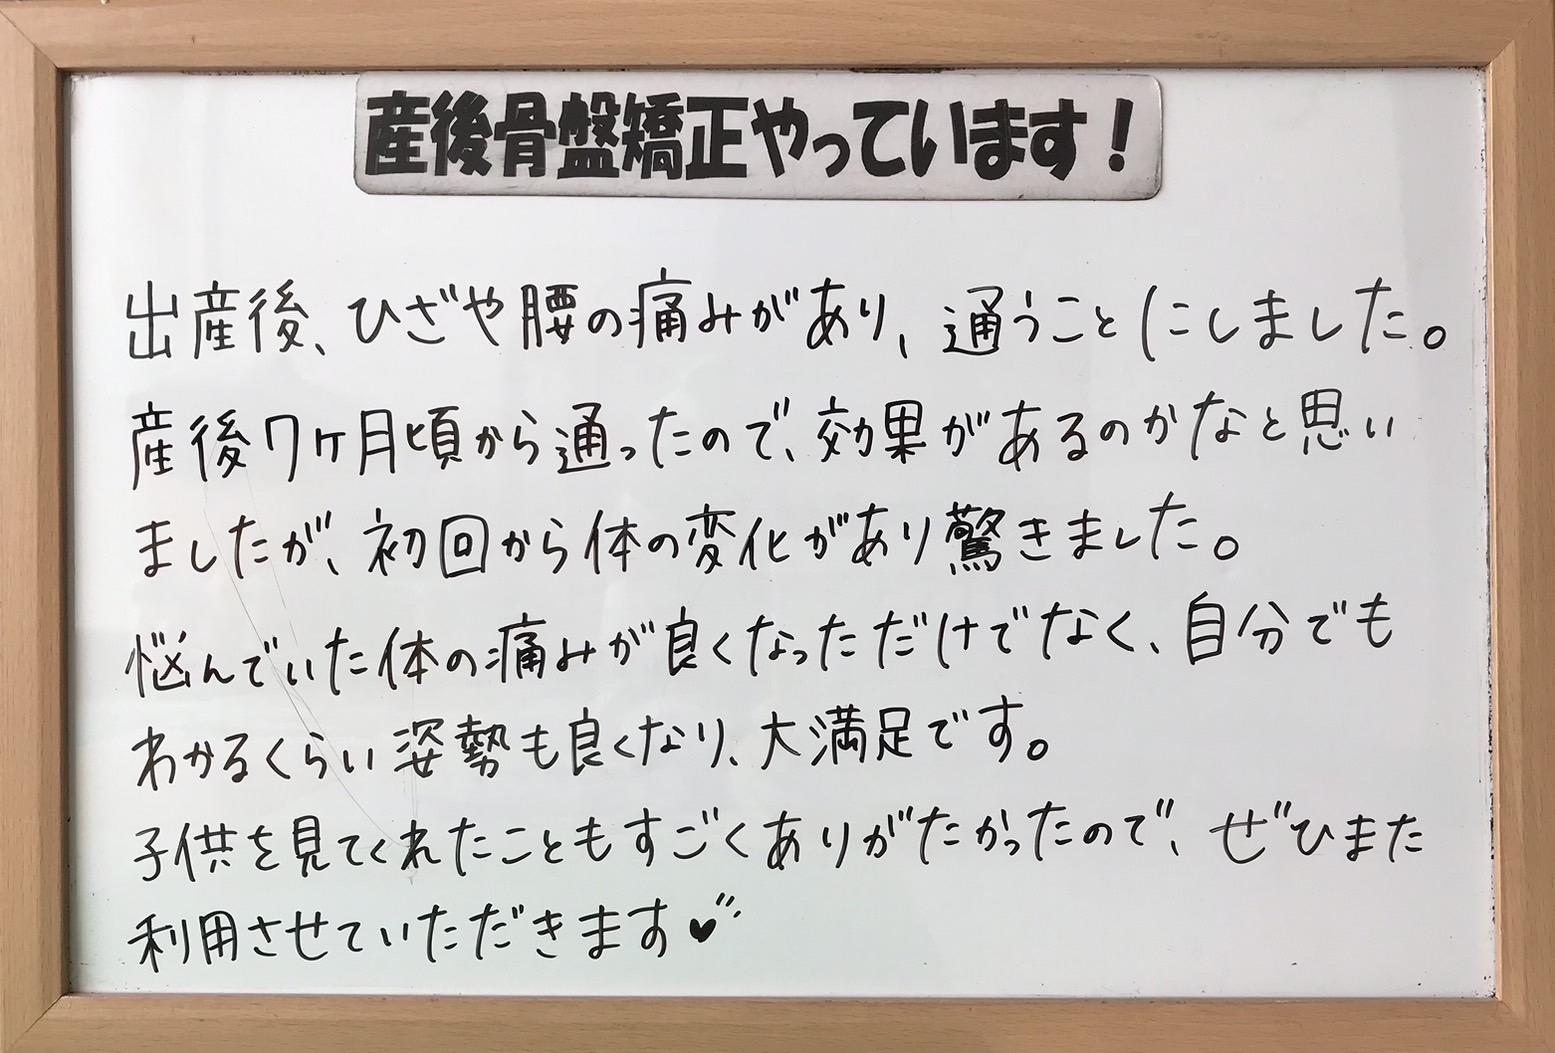 産後骨盤矯正やっています!
出産後、ひざや腰の痛みがあり、通うことにしました。
産後7ヶ月頃から通ったので、効果があるのかなと思い
ましたが、初回から体の変化があり驚きました。
悩んでいた体の痛みが良くなっただけでなく、自分でも
わかるくらい姿勢も良くなり、大満足です。
子供を見てくれたこともすごくありがたかったので、ぜひまた
利用させていただきます♥